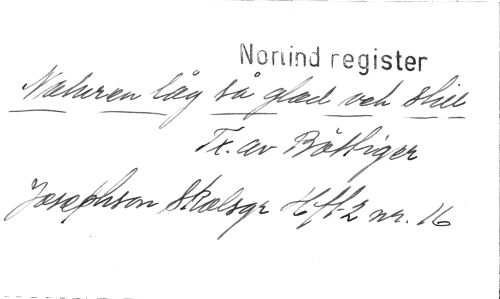 Norlind register
Naturen låg så glad och still
Tx. av Böttiger
Josephson Skolsgr Hft 2 nr. 16